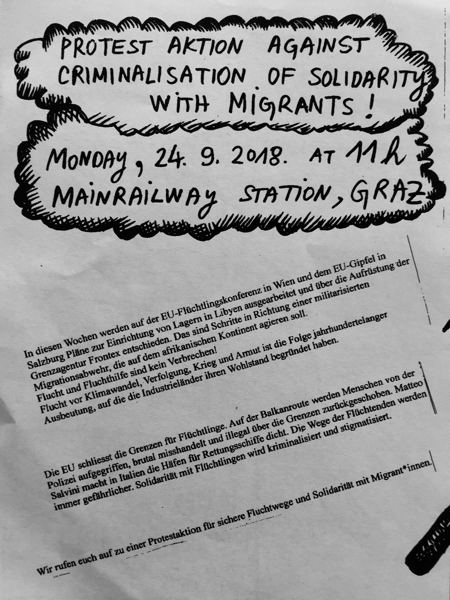 PROTEST AKTION AGAINST
CRIMINALISATION OF SOLIDARITY
WITH MIGRANTS!
MONDAY, 24. 9. 2018. AT 11h
MAINRAILWAY STATION, GRAZ
In diesen Wochen werden auf der EU-Flüchtlingskonferenz in Wien und dem EU-Gipfel in
Salzburg Pläne zur Einrichtung von Lagern in Libyen ausgearbeitet und über die Aufrüstung der
Grenzagentur Frontex entschieden. Das sind Schritte in Richtung einer militarisierten
Migrationsabwehr, die auf dem afrikanischen Kontinent agieren soll.
Flucht und Fluchthilfe sind kein Verbrechen!
Flucht vor Klimawandel, Verfolgung, Krieg und Armut ist die Folge jahrhundertelanger
Ausbeutung, auf die die Industrieländer ihren Wohlstand begründet haben.
Die EU schliesst die Grenzen für Flüchtlinge. Auf der Balkanroute werden Menschen von der
Polizei aufgegriffen, brutal misshandelt und illegal über die Grenzen zurückgeschoben. Matteo
Salvini macht in Italien die Häfen für Rettungsschiffe dicht. Die Wege der Flüchtenden werden
immer gefährlicher. Solidarität mit Flüchtlingen wird kriminalisiert und stigmatisiert.
Wir rufen euch auf zu einer Protestaktion für sichere Fluchtwege und Solidarität mit Migrant*innen.